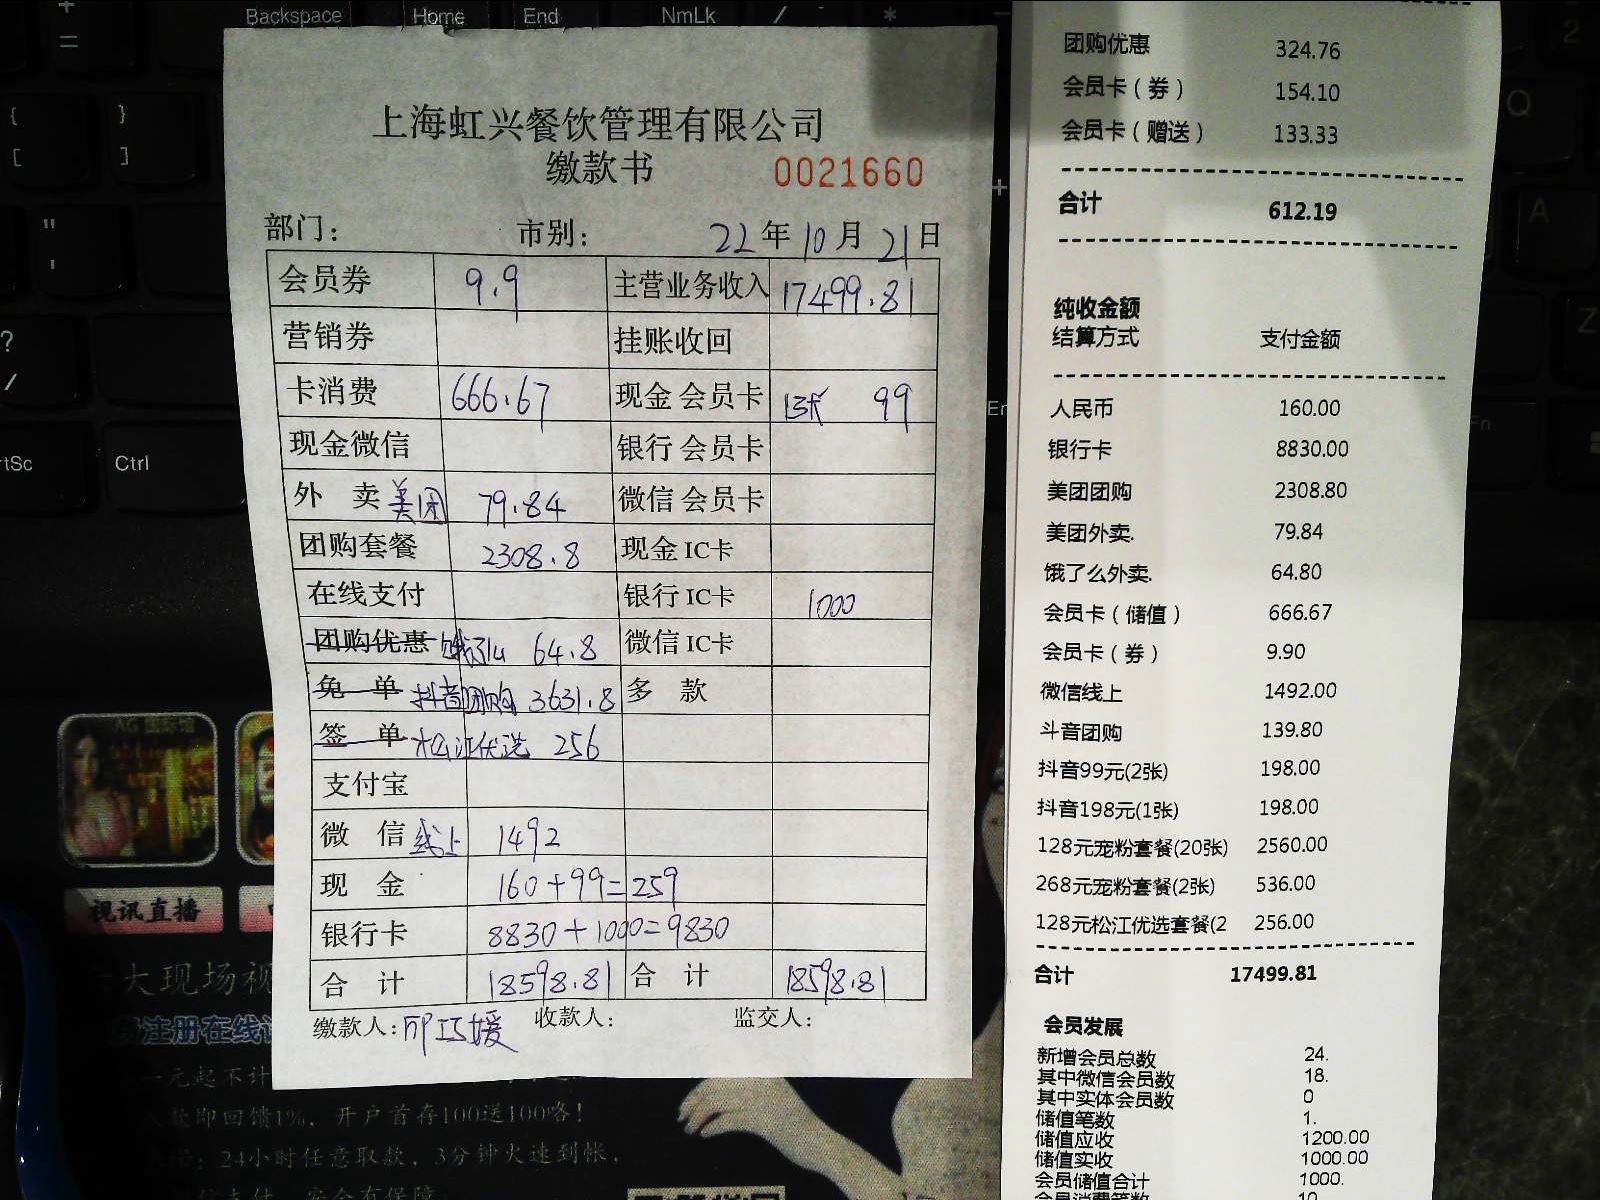 Backspace Home End NmLk / *
+
=
{ }
[ ]
"
'
?
/
Ctrl
上海虹兴餐饮管理有限公司
缴款书 0021660
部门： 市别： 22年10月21日
会员券 9.9 主营业务收入 17499.81
营销券 挂账收回
卡消费 666.67 现金会员卡 13张 99
现金微信 银行会员卡
外 卖 美团 79.84 微信会员卡
团购套餐 2308.8 现金IC卡
在线支付 银行IC卡 1000
团购优惠 饿了么 64.8 微信IC卡
免 单 抖音团购 3631.8 多 款
签 单 松江优选 256
支付宝
微 信 线上 1492
现 金 160+99=259
银行卡 8830+1000=9830
合 计 18598.81 合 计 18598.81
缴款人： 收款人： 监交人：
团购优惠 324.76
会员卡（券） 154.10
会员卡（赠送） 133.33
合计 612.19
纯收金额
结算方式 支付金额
人民币 160.00
银行卡 8830.00
美团团购 2308.80
美团外卖. 79.84
饿了么外卖. 64.80
会员卡（储值） 666.67
会员卡（券） 9.90
微信线上 1492.00
斗音团购 139.80
抖音99元(2张) 198.00
抖音198元(1张) 198.00
128元宠粉套餐(20张) 2560.00
268元宠粉套餐(2张) 536.00
128元松江优选套餐(2 256.00
合计 17499.81
会员发展
新增会员总数 24.
其中微信会员数 18.
其中实体会员数 0
储值笔数 1.
储值应收 1200.00
储值实收 1000.00
会员储值合计 1000.
视讯直播
大现场视
注册在线
一元起不计
款即回馈1%，开户首存100送100咯！
24小时任意取款，3分钟火速到帐，